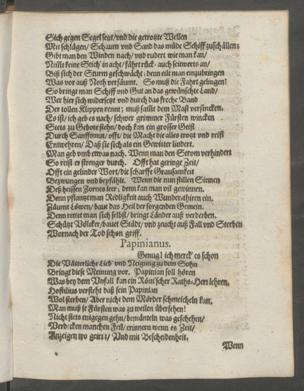 Sich gegen Segel setzt/und die getrotzte Wellen
Mit schlägen/Schaum und Sand das müde Schiff zuschällen:
Gibt man den Winden nach/und rudert wie man kan/
Nicht seine Reich' in acht/fährt rück- auch seitwerts an/
Biß sich der Sturm geschwächt: denn eilt man einzubringen
Was vor auß Noth versäumt. So muß die Fahrt gelingen!
So bringt man Schiff und Gut an das gewünschte Land/
Wer hier sich widersetzt und durch das freche Band
Der tollen Klippen rennt; muß sambt dem Mast versincken.
Es ist/ich geh es nach/schwer grimmer Fürsten wincken
Stets zu Gebote stehn/doch kan ein grosser Geist
Durch Sanfftmutt/offt/die Macht die alles trotzt und reist
Entwehren/Daß sie sich als ein Gewitter lindert.
Man geb und etwas nach. Wenn man den Strom verhindert
So reist er strenger durch. Offt hat geringe Zeit/
Offt ein gelinder Wort/die scharffe Grausamkeit
Bezwungen und bepfählt. Wenn die nun stillen Sinnen
Deß heissen Zornes leer, denn kan man vil gewinnen.
Denn pflantzt man Redligkeit auch Wundern thieren ein.
Zäumt Löwen/baut das Heil der fergenden Gemein.
Denn rettet man sich selbst/bringt Länder auß verderben.
Schützt Völcker/bauet Städt/und zeucht auß Fall und Sterben
Wornach der Tod schon griff.
Papinianus.
Genug! ich merck' es schon
Die Väterliche Lieb' und Neigung zu dem Sohn
Bringt diese Meinung vor. Papinian soll hören
Was bey dem Unfall kan ein Römischer Raths-Herr lehren,
Hostilius versteht daß sein Papinian
Wol sterben/Aber nicht dem Mörder schmeicheln kan,
Man muß je Fürsten was zu weilen übersehen!
Nicht stets entgegen gehn/bemänteln was geschehen/
Verdecken manchen Feil/erinnern wenn es Zeit/
Anzeigen wo geirrt/Und mit Bescheidenheit,
Wenn